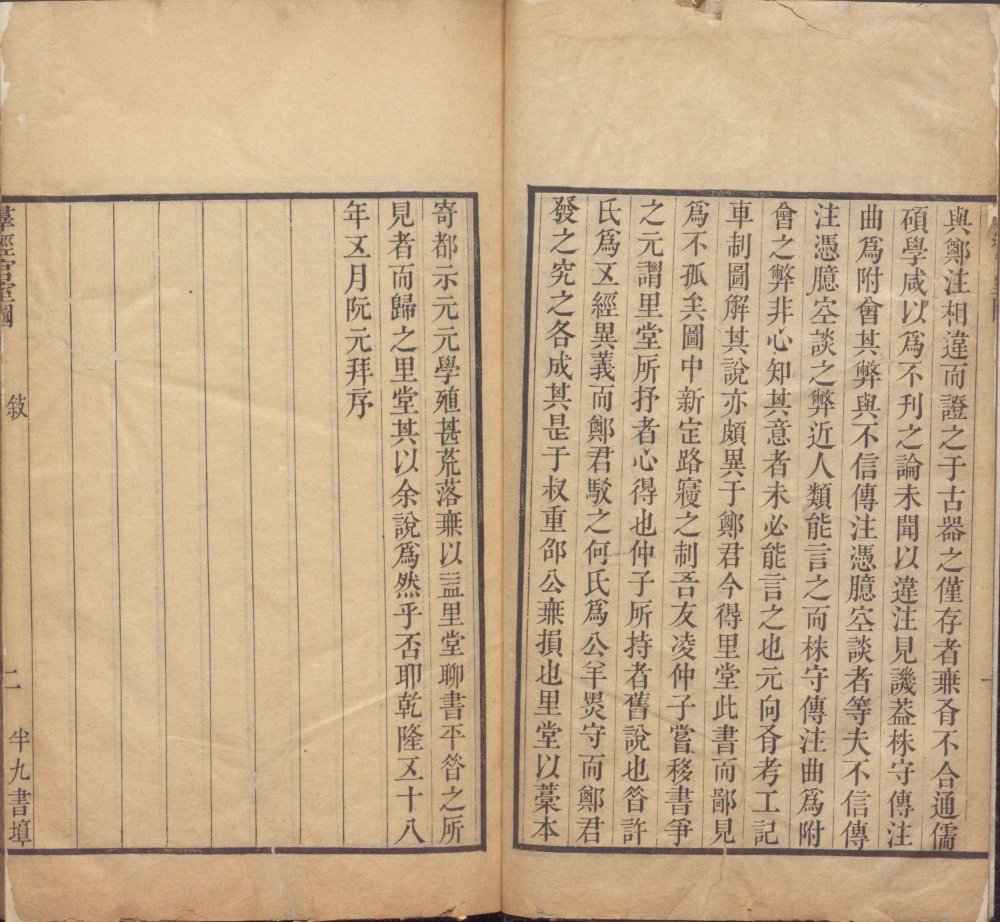 與鄭注相違而證之于古器之僅存者無有不合通儒
碩學咸以爲不刊之論未聞以違注見譏葢株守傳注
曲爲附會其弊與不信傳注憑臆空談者等夫不信傳
注憑臆空談之弊近人類能言之而株守傳注曲爲附
會之弊非心知其意者未必能言之也元向有考工記
車制圖解其說亦頗異于鄭君今得里堂此書而鄙見
爲不孤矣圖中新定路寢之制吾友凌仲子嘗移書爭
之元謂里堂所抒者心得也仲子所持者舊說也昔許
氏爲五經異義而鄭君駁之何氏爲公羊墨守而鄭君
發之究之各成其是于叔重邵公無損也里堂以藁本
寄都示元元學殖甚荒落無以益里堂聊書平昔之所
見者而歸之里堂其以余說爲然乎否耶乾隆五十八
年五月阮元拜序
羣經宮室圖
敍
二
半九書塾